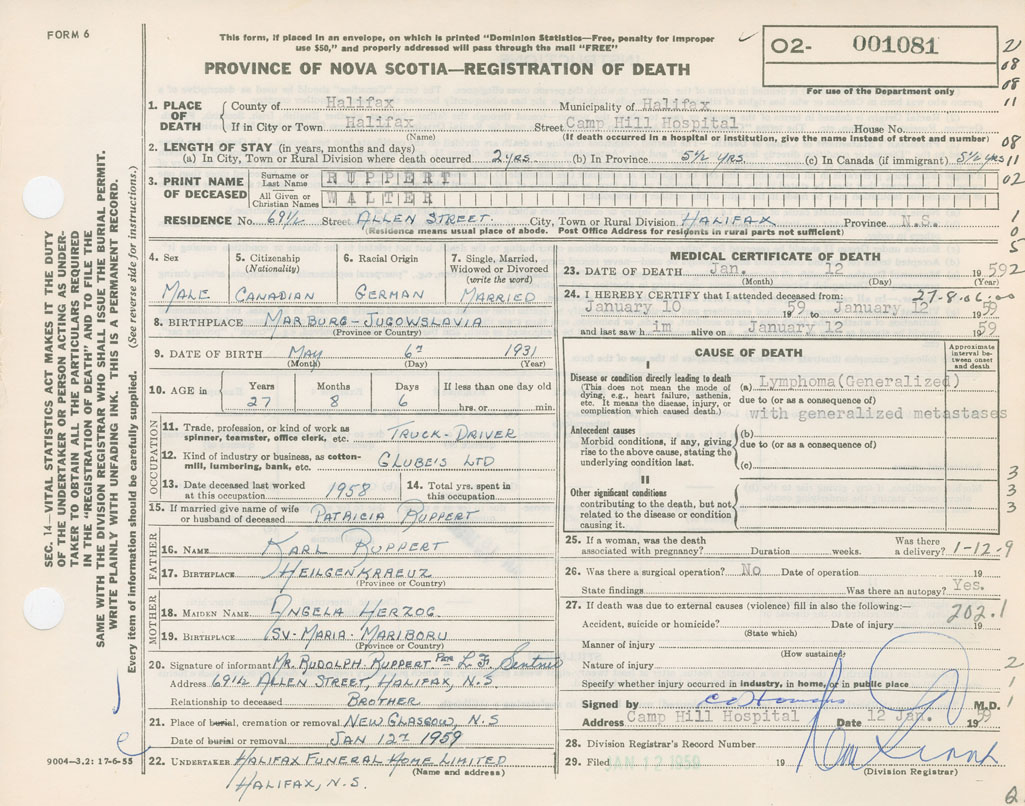 FORM 6
This form, if placed in an envelope, on which is printed "Dominion Statistics—Free, penalty for improper
use $50," and properly addressed will pass through the mail "FREE"
PROVINCE OF NOVA SCOTIA—REGISTRATION OF DEATH
O2- 001081
For use of the Department only
SEC. 14—VITAL STATISTICS ACT MAKES IT THE DUTY
OF THE UNDERTAKER OR PERSON ACTING AS UNDER-
TAKER TO OBTAIN ALL THE PARTICULARS REQUIRED
IN THE "REGISTRATION OF DEATH" AND TO FILE THE
SAME WITH THE DIVISION REGISTRAR WHO SHALL ISSUE THE BURIAL PERMIT.
WRITE PLAINLY WITH UNFADING INK. THIS IS A PERMANENT RECORD.
Every item of Information should be carefully supplied. (See reverse side for instructions.)
1. PLACE OF DEATH
County of Halifax Municipality of Halifax
If in City or Town Halifax Street Camp Hill Hospital House No.
(Name) (If death occurred in a hospital or institution, give the name instead of street and number)
2. LENGTH OF STAY (in years, months and days)
(a) In City, Town or Rural Division where death occurred 2 yrs. (b) In Province 5½ yrs. (c) In Canada (if immigrant) 5½ yrs
3. PRINT NAME OF DECEASED
Surname or Last Name RUPPERT
All Given or Christian Names WALTER
RESIDENCE No. 69½ Street ALLEN STREET. City, Town or Rural Division HALIFAX Province N.S.
(Residence means usual place of abode. Post Office Address for residents in rural parts not sufficient)
4. Sex 5. Citizenship (Nationality) 6. Racial Origin 7. Single, Married, Widowed or Divorced (write the word)
MALE CANADIAN GERMAN MARRIED
8. BIRTHPLACE MARBURG-JUGOWSLAVIA
(Province or Country)
9. DATE OF BIRTH MAY 6TH 1931
(Month) (Day) (Year)
10. AGE in Years Months Days If less than one day old
27 8 6 hrs. or min.
OCCUPATION
11. Trade, profession, or kind of work as
spinner, teamster, office clerk, etc. TRUCK-DRIVER
12. Kind of industry or business, as cotton-
mill, lumbering, bank, etc. GLUBE'S LTD
13. Date deceased last worked at this occupation 1958 14. Total yrs. spent in this occupation
15. If married give name of wife
or husband of deceased PATRICIA RUPPERT
FATHER
16. NAME KARL RUPPERT
17. BIRTHPLACE HEILGENKRAEUZ
(Province or Country)
MOTHER
18. MAIDEN NAME ANGELA HERZOG.
19. BIRTHPLACE SV-MARIA-MARIBORU
(Province or Country)
20. Signature of informant MR. RUDOLPH. RUPPERT Per L. F.
Address 69½ ALLEN STREET, HALIFAX, N.S.
Relationship to deceased BROTHER
21. Place of burial, cremation or removal NEW GLASGOW, N.S
Date of burial or removal JAN 12TH 1959
22. UNDERTAKER HALIFAX FUNERAL HOME LIMITED
(Name and address)
HALIFAX, N.S.
9004—3.2: 17-6-55
MEDICAL CERTIFICATE OF DEATH
23. DATE OF DEATH Jan. 12 19 59
(Month) (Day) (Year)
27-8-06-00
24. I HEREBY CERTIFY that I attended deceased from:
January 10 19 59 to January 12 19 59
and last saw h im alive on January 12 19 59
CAUSE OF DEATH
Approximate interval between onset and death
I
Disease or condition directly leading to death
(This does not mean the mode of
dying, e.g., heart failure, asthenia,
etc. It means the disease, injury, or
complication which caused death.)
(a) Lymphoma(Generalized)
due to (or as a consequence of)
with generalized metastases
Antecedent causes
Morbid conditions, if any, giving
rise to the above cause, stating the
underlying condition last.
(b)
due to (or as a consequence of)
(c)
II
Other significant conditions
contributing to the death, but not
related to the disease or condition
causing it.
25. If a woman, was the death Was there
associated with pregnancy? Duration weeks. a delivery? 1-12-9
26. Was there a surgical operation? No Date of operation 19
State findings Was there an autopsy? Yes.
27. If death was due to external causes (violence) fill in also the following:—
202.1
Accident, suicide or homicide? Date of injury 19
(State which)
Manner of injury
(How sustained)
Nature of injury
Specify whether injury occurred in industry, in home, or in public place
Signed by M.D.
Address Camp Hill Hospital Date 12 Jan. 19 59
28. Division Registrar's Record Number
29. Filed JAN 12 1959 19
(Division Registrar)